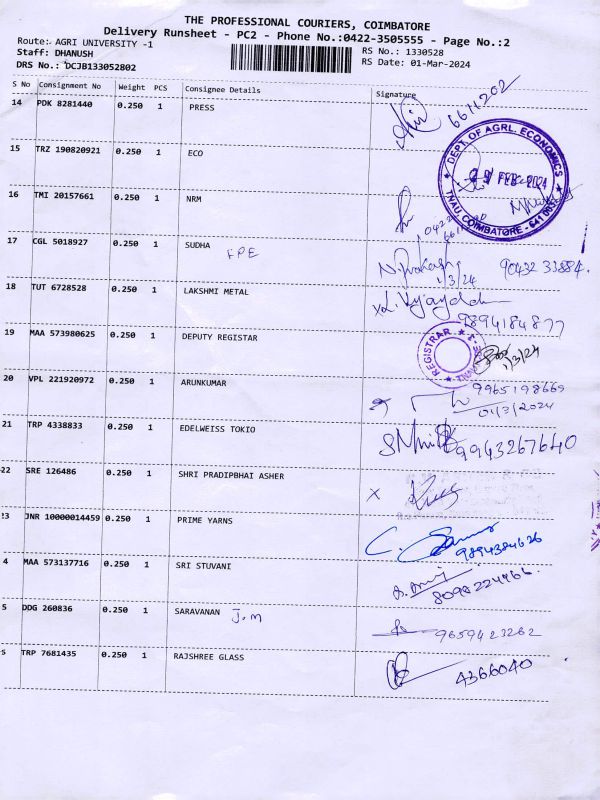 THE PROFESSIONAL COURIERS, COIMBATORE
Delivery Runsheet - PC2 - Phone No.:0422-3505555 - Page No.:2
Route: AGRI UNIVERSITY -1
RS No.: 1330528
Staff: DHANUSH
RS Date: 01-Mar-2024
DRS No.: DCJB133052802
S No Consignment No Weight PCS Consignee Details Signature
14 PDK 8281440 0.250 1 PRESS
6611202
15 TRZ 190820921 0.250 1 ECO
DEPT. OF AGRL. ECONOMICS
FEB 2024
TNAU, COIMBATORE - 641 003
16 TMI 20157661 0.250 1 NRM
17 CGL 5018927 0.250 1 SUDHA
1/3/24 90432 33884.
18 TUT 6728528 0.250 1 LAKSHMI METAL
9894184877
19 MAA 573980625 0.250 1 DEPUTY REGISTAR
REGISTRAR
1/3/24
20 VPL 221920972 0.250 1 ARUNKUMAR
9965198669
01/3/2024
21 TRP 4338833 0.250 1 EDELWEISS TOKIO
9943267640
22 SRE 126486 0.250 1 SHRI PRADIPBHAI ASHER
23 JNR 10000014459 0.250 1 PRIME YARNS
9894384626
4 MAA 573137716 0.250 1 SRI STUVANI
8098224466.
5 DDG 260836 0.250 1 SARAVANAN J.M
9659423262
TRP 7681435 0.250 1 RAJSHREE GLASS
4366040